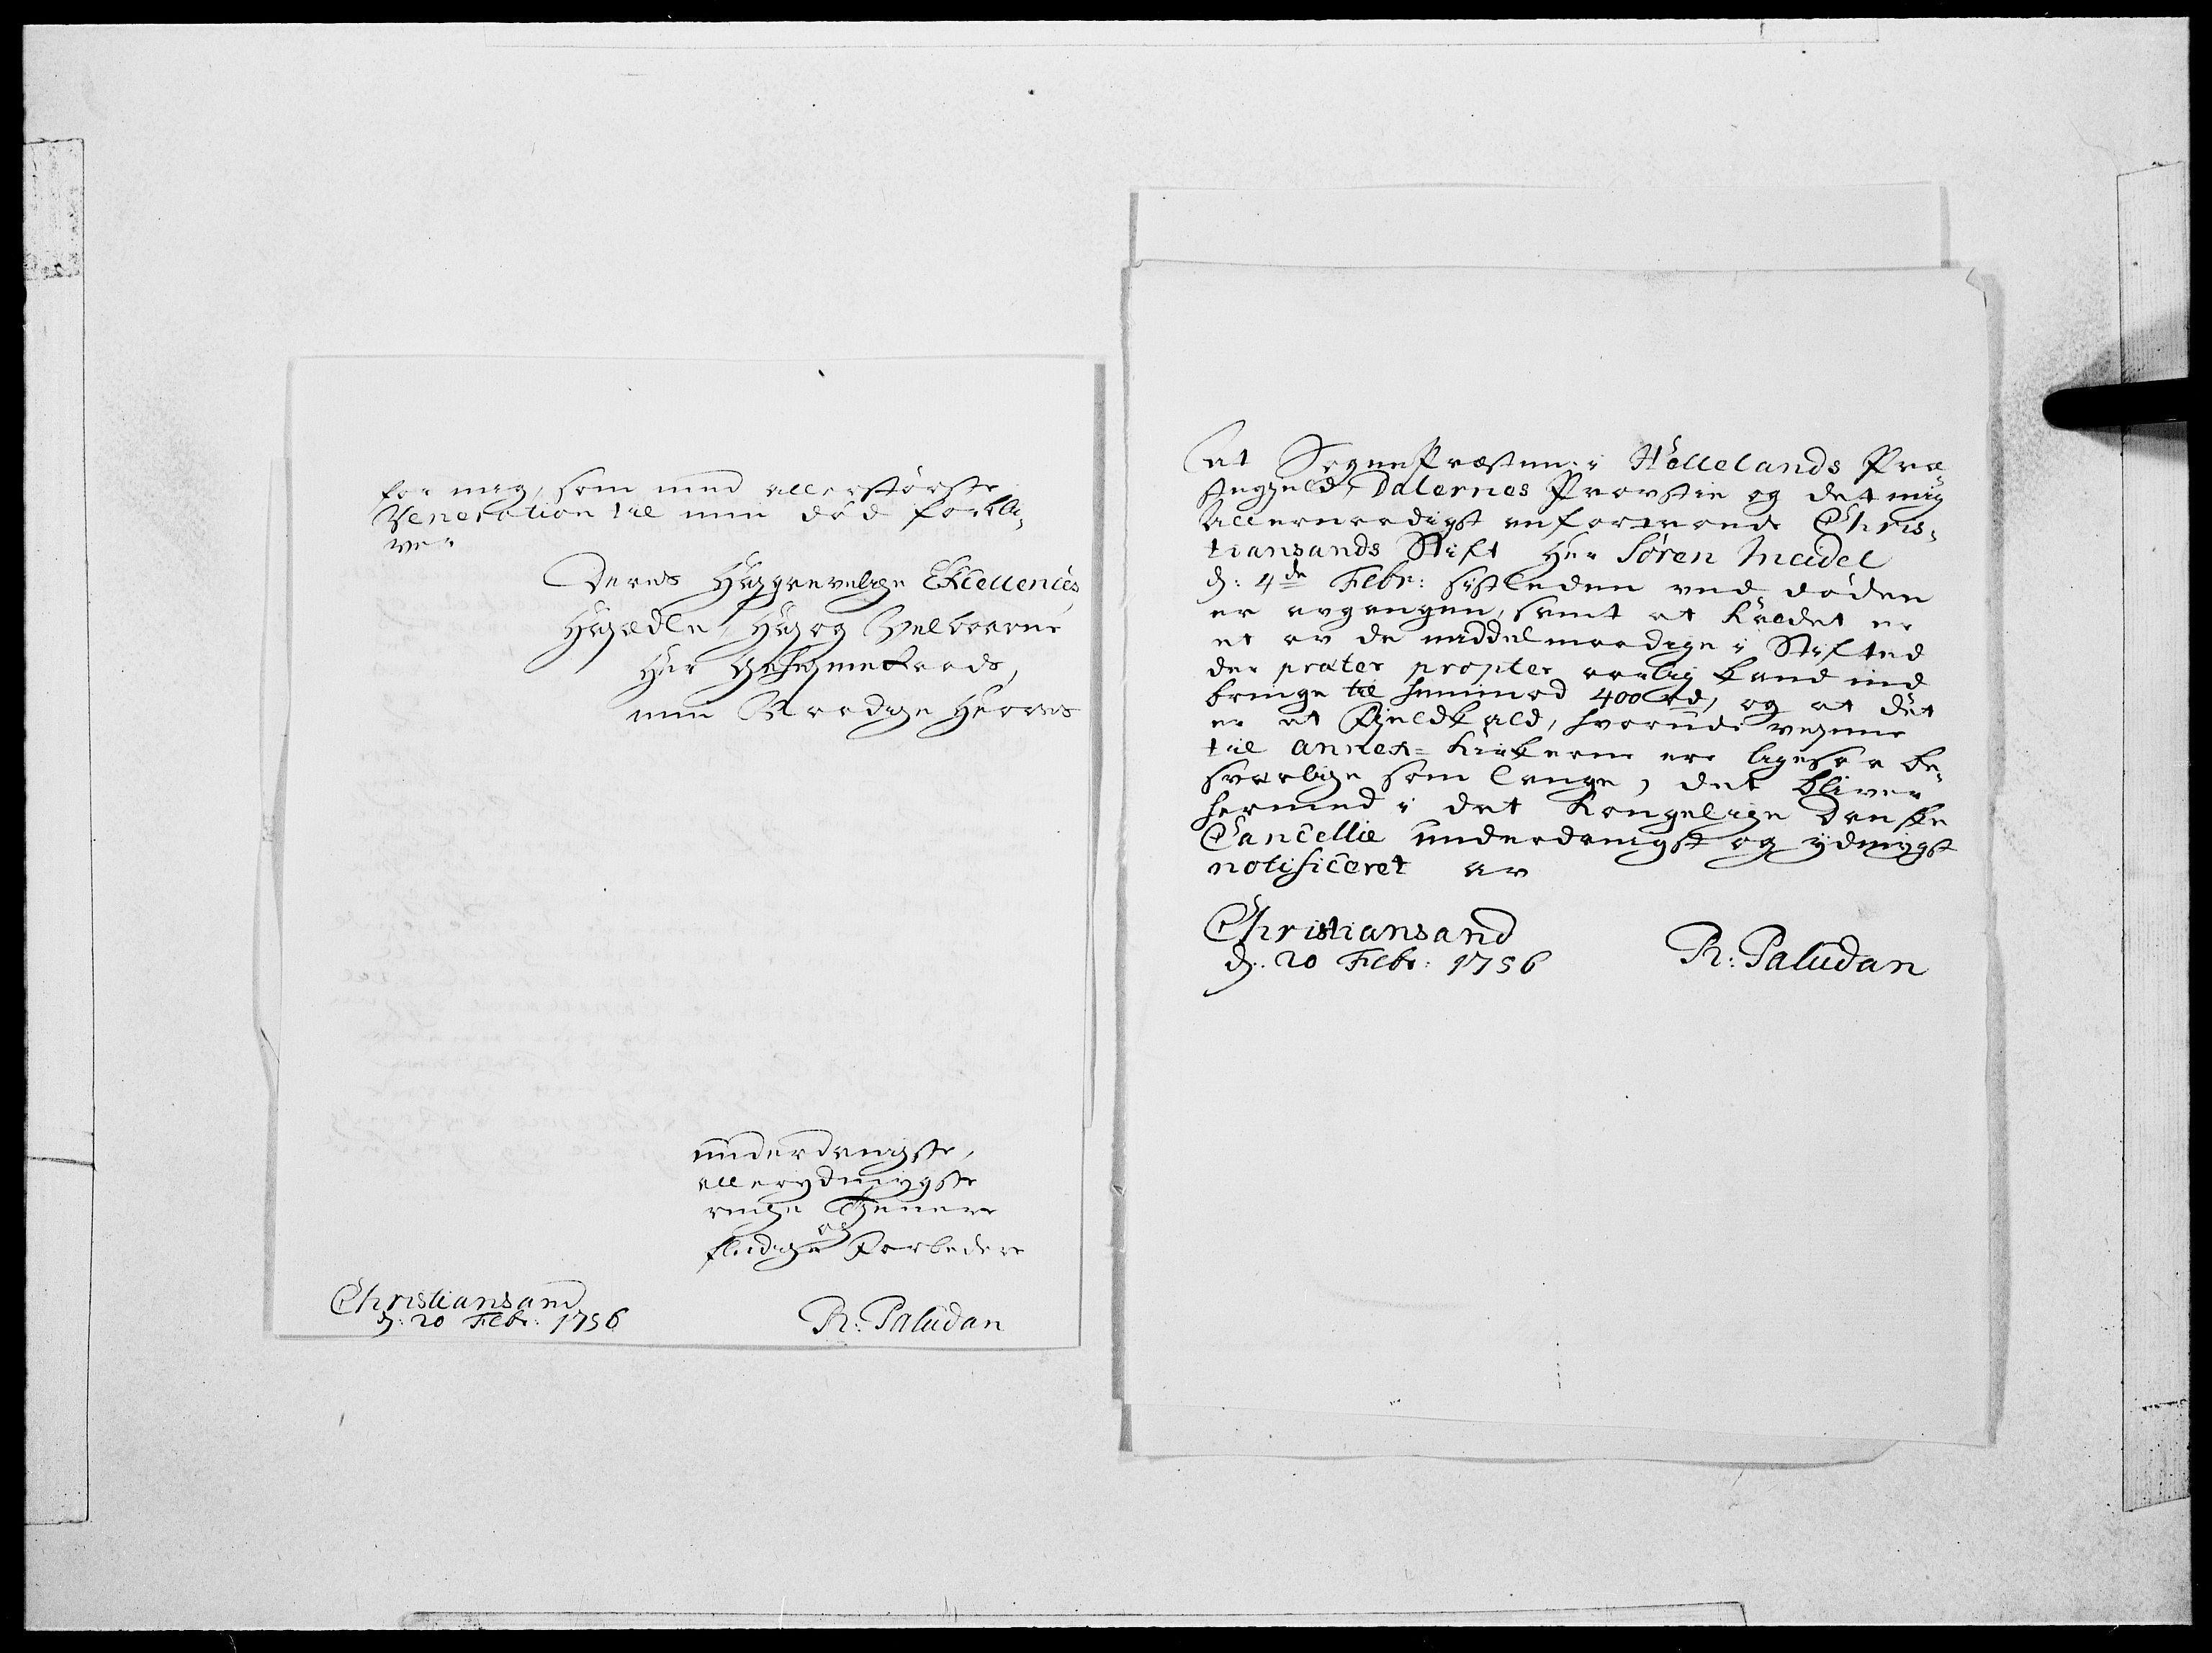 for mig, som med allerstørste
Veneration til min død forbli,
ver
Deres Høygrevelige Excellences
Høyædle, Høy og Velbaarne
Her Geheyme Raads,
min Naadige Herres
underdanigste,
allerydmygste
ringe Tjenere
og
flidige Forbedere
Christiansand
d: 20 Febr: 1756
R: Paludan
At SognePræsten i Hellelands Præ
stegjeld, Dalernes Provstie og det mig
Allernaadigst anfortroede Chris,
tiansands Stift Her Søren Meidel
d: 4de Febr: sistleden ved døden
er avgangen, samt at Kaldet er
et av de middelmaadige i Stiftet
der præter propter aarlig kand ind
bringe til henimod 400 rd, og at det
er et Fjeldkald, hvorudi vejene
til annex-Kirkerne ere ligesaa be,
sværlige som lange, det bliver
hermed i det Kongelige Danske
Cancellie underdanigst og ydmygst
notificeret av
Christiansand
d: 20 Febr: 1756
R: Paludan